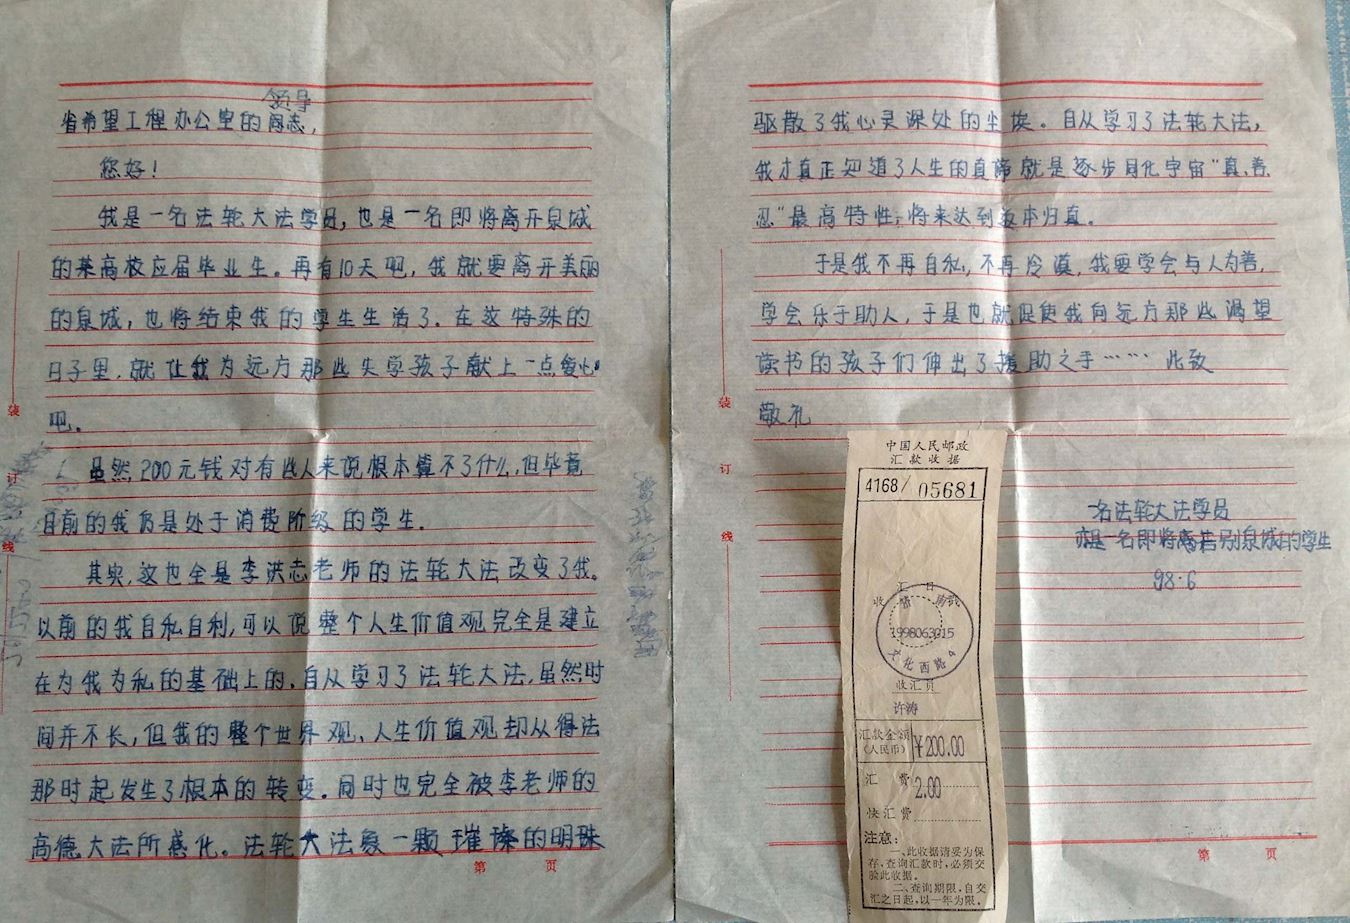 领导
省希望工程办公室的同志，
您好！
我是一名法轮大法学员，也是一名即将离开泉城
的某高校应届毕业生。再有10天吧，我就要离开美丽
的泉城，也将结束我的学生生活了。在这特殊的
日子里，就让我为远方那些失学孩子献上一点爱心
吧。
虽然200元钱对有些人来说根本算不了什么，但毕竟
目前的我仍是处于消费阶级的学生．
其实，这也全是李洪志老师的法轮大法改变了我。
以前的我自私自利，可以说整个人生价值观完全是建立
在为我为私的基础上的，自从学习了法轮大法，虽然时
间并不长，但我的整个世界观、人生价值观却从得法
那时起发生了根本的转变．同时也完全被李老师的
高德大法所感化。法轮大法象一颗璀璨的明珠
第 页
装
订
线
驱散了我心灵深处的尘埃。自从学习了法轮大法，
我才真正知道了人生的真谛就是逐步同化宇宙“真、善、
忍”最高特性，将来达到返本归真。
于是我不再自私，不再冷漠，我要学会与人为善，
学会乐于助人，于是也就促使我向远方那些渴望
读书的孩子们伸出了援助之手…… 此致
敬礼
一名法轮大法学员
亦是一名即将离告别泉城的学生
98.6
第 页
装
订
线
中国人民邮政
汇款收据
4168/05681
汇 日
收 戳
1998063015
文化西路4
收汇员
许涛
汇款金额
（人民币）
¥200.00
汇 费 2.00
快汇费
注意：
一、此收据请妥为保
存，查询汇款时，必须交
验此收据。
二、查询期限，自交
汇之日起，以一年为限。